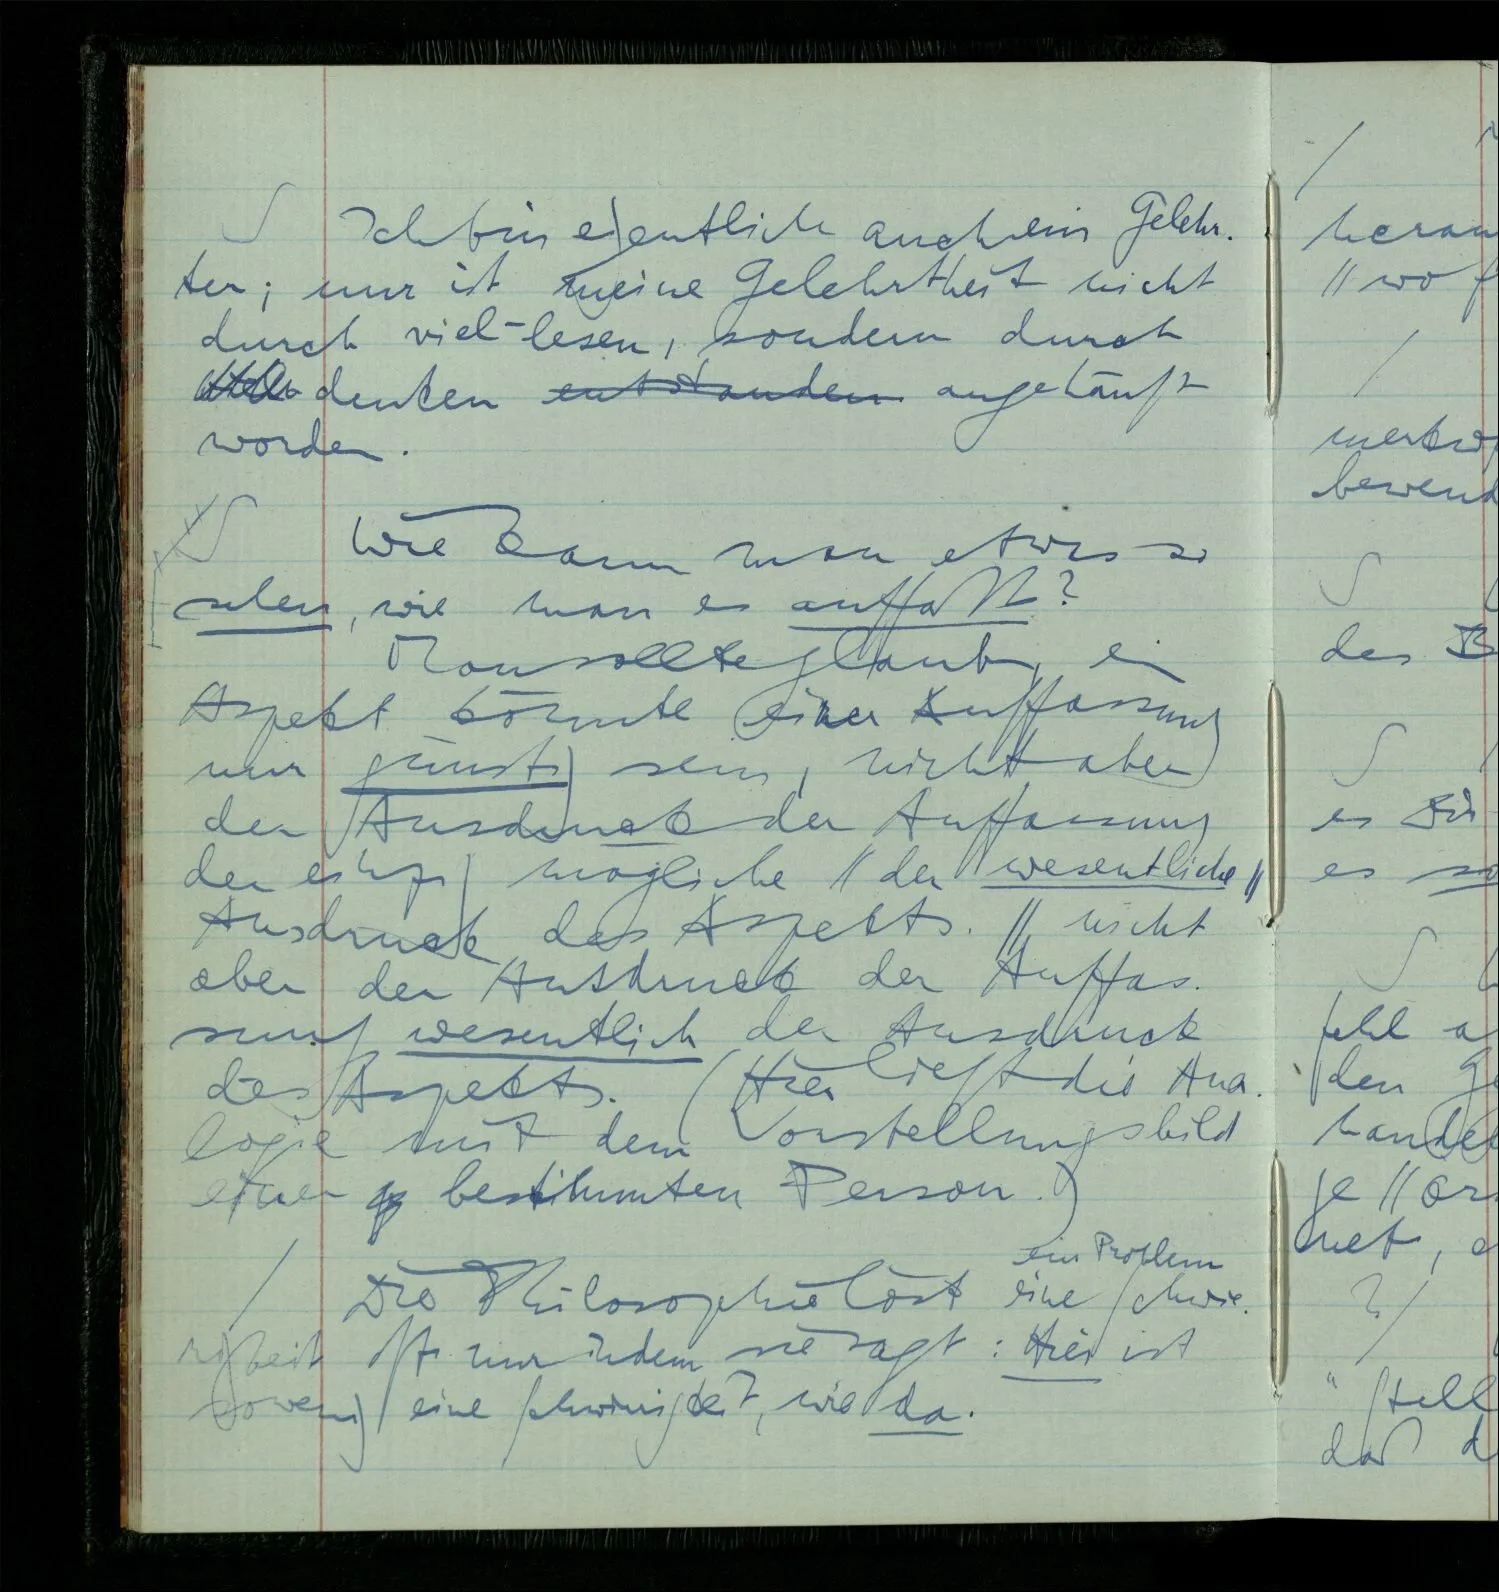 Ich bin eigentlich auch ein Gelehr-
ter; nur ist meine Gelehrtheit nicht
durch viel-lesen, sondern durch
denken entstanden angehäuft
worden.
Wie kann man etwas so
sehen, wie man es auffaßt?
Man sollte glauben, ein
Aspekt könnte einer Auffassung
nur günstig sein, nicht aber
der Ausdruck der Auffassung
der einzig mögliche // der wesentliche //
Ausdruck des Aspekts. // nicht
aber der Ausdruck der Auffas-
sung wesentlich der Ausdruck
des Aspekts. (Hier liegt die Ana-
logie mit dem Vorstellungsbild
einer bestimmten Person.)
ein Problem
Die Philosophie löst eine Schwie-
rigkeit oft nur indem sie sagt: Hier ist
sowenig eine Schwierigkeit, wie da.
/
heran
// wo
/
merkw
bewend
des B
es
es so
fehl a
den Ge
handel
je // or
net, e
/
" Stell
daß d